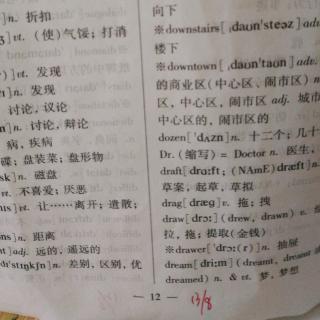 n. 折扣
]vt. (使)气馁;打消
) vt. 发现
n. 发现
讨论,议论
]n. 讨论,辩论
病,疾病
碟;盘装菜;盘形物
sk] n. 磁盘
vt. 不喜爱;厌恶
us] vt. 让……离开;遣散;
ns] n. 距离
nt]adj. 远的,遥远的
di'stɪŋkʃn] n. 差别,区别,优
向下
※downstairs[ˌdaʊn'steəz] adv.
楼下
※downtown[ˌdaʊn'taʊn] adv.
的商业区(中心区、闹市区) n.
区,中心区,闹市区 adj. 城市
中心区的,闹市区的
dozen['dʌzn] n. 十二个;几十
Dr. (缩写) = Doctor n. 医生,
draft[drɑːft; (NAmE) dræft] n.
草案,起草,草拟
drag[dræg] v. 拖;拽
draw[drɔː] (drew, drawn) v.
拉,拖;提取(金钱)
※drawer['drɔː(r)] n. 抽屉
dream[driːm] (dreamt, dreamt
dreamed) n. & vt. 梦,梦想
— 12 —
13/8